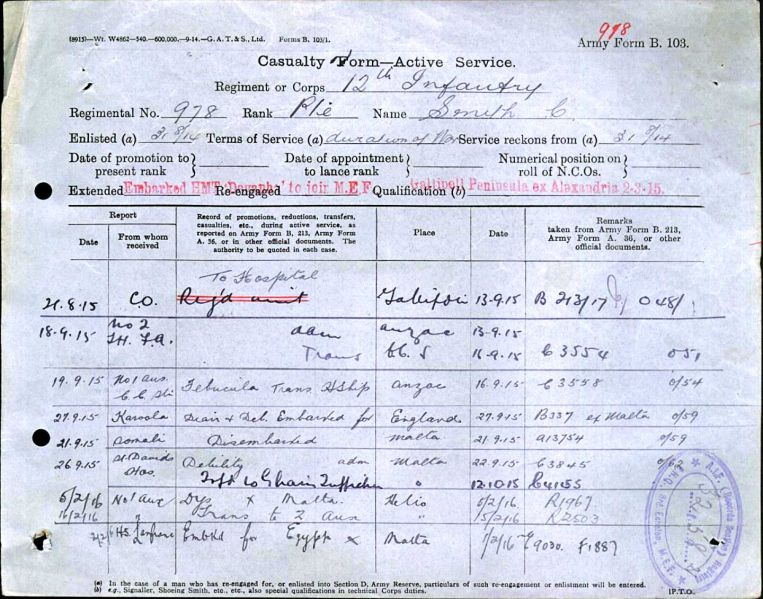 978
(8915)—Wt. W4862—540.—600,000.—9-14.—G. A. T. & S., Ltd. Forms B. 103/1.
Army Form B. 103.
Casualty Form—Active Service.
Regiment or Corps 12th Infantry
Regimental No. 978 Rank Pte Name Smith C
Enlisted (a) Terms of Service (a) duration of War Service reckons from (a)
Date of promotion to present rank Date of appointment to lance rank Numerical position on roll of N.C.Os.
Extended Embarked HMT to join M.E.F Re-engaged Qualification (b) Gallipoli Peninsula ex Alexandria 2-3-15.
Report
Date From whom received Record of promotions, reductions, transfers, casualties, etc., during active service, as reported on Army Form B. 213, Army Form A. 36, or in other official documents. The authority to be quoted in each case. Place Date Remarks taken from Army Form B. 213, Army Form A. 36, or other official documents.
To Hospital
21.8.15 C.O. Rej'd unit Gallipoli 13.9.15 B 213/17 048/
18.9.15 No 2 adm Anzac 13-9-15
F.A. Trans 16.9.15 C3554 051
19.9.15 No 1 Aus. Trans HShip Anzac 16.9.15 C3558 0/54
27.9.15 Karoola Deb. Embarked for England 27.9.15 B337 ex Malta 0/59
21.9.15 Somali Disembarked Malta 21.9.15 A13754 0/59
26.9.15 St Davids Hos. Debility adm Malta 22.9.15 C3845
to Ghain Tuffieha " 12.10.15 C4155
5/2/16 No 1 Aux Dys x Malta. Helio 5/2/16 R1967
16/2/16 Trans to 2 Aux " 15/2/16 R2503
HS. Embkd for Egypt x Malta 1/2/16 E9030. F1887
(a) In the case of a man who has re-engaged for, or enlisted into Section D, Army Reserve, particulars of such re-engagement or enlistment will be entered.
(b) e.g., Signaller, Shoeing Smith, etc., etc., also special qualifications in technical Corps duties.
[P.T.O.